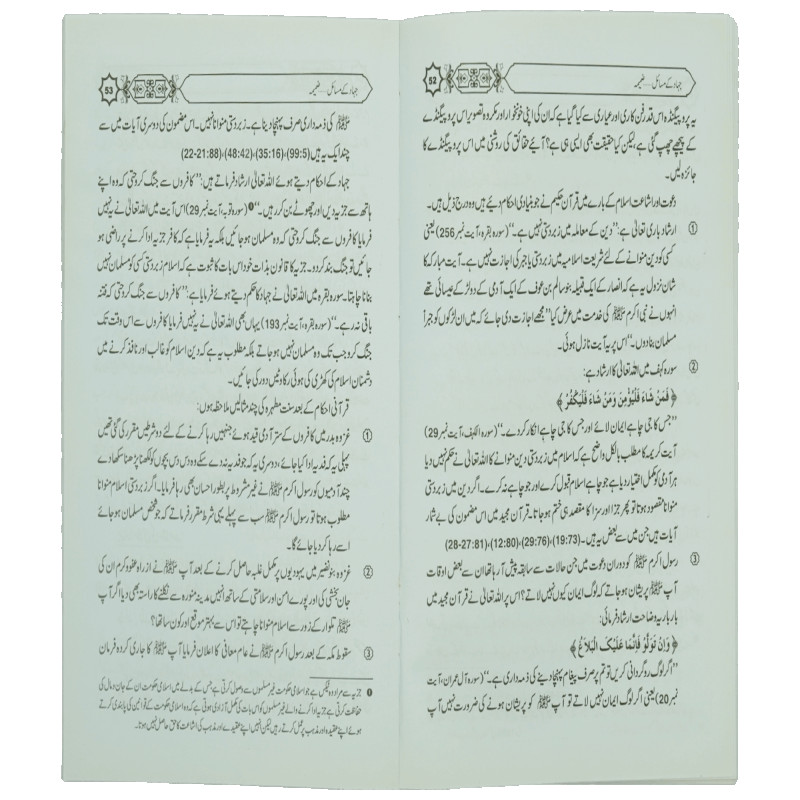 جہاد کے مسائل ... ضمیمہ
52
یہ پروپیگنڈہ اس قدر فن کاری اور عیاری سے کیا گیا ہے کہ ان کی اپنی خونخوار اور مکروہ تصویر اس پروپیگنڈے
کے پیچھے چھپ گئی ہے، لیکن کیا حقیقت بھی ایسی ہی ہے؟ آئیے حقائق کی روشنی میں اس پروپیگنڈے کا
جائزہ لیں۔
دعوت اور اشاعت اسلام کے بارے میں قرآن حکیم نے جو بنیادی احکام دیئے ہیں وہ درج ذیل ہیں۔
① ارشاد باری تعالیٰ ہے: ’’دین کے معاملہ میں زبردستی نہیں ہے۔‘‘ (سورہ بقرہ، آیت نمبر 256) یعنی
کسی کو دین منوانے کے لئے شریعت اسلامیہ میں زبردستی یا جبر کی اجازت نہیں ہے۔ آیت مبارکہ کا
شان نزول یہ ہے کہ انصار کے ایک قبیلہ بنو سالم بن عوف کے ایک آدمی کے دو لڑکے عیسائی تھے
انہوں نے نبی اکرم ﷺ کی خدمت میں عرض کیا ’’مجھے اجازت دی جائے کہ میں ان لڑکوں کو جبراً
مسلمان بنا دوں۔‘‘ اس پر یہ آیت نازل ہوئی۔
② سورہ کہف میں اللہ تعالیٰ کا ارشاد ہے:
﴿فَمَنْ شَاءَ فَلْيُؤْمِنْ وَمَنْ شَاءَ فَلْيَكْفُرْ﴾
’’جس کا جی چاہے ایمان لائے اور جس کا جی چاہے انکار کر دے۔‘‘ (سورہ الکہف، آیت نمبر 29)
آیت کریمہ کا مطلب بالکل واضح ہے کہ اسلام میں زبردستی دین منوانے کا اللہ تعالیٰ نے حکم نہیں دیا
ہر آدمی کو مکمل اختیار دیا ہے جو چاہے اسلام قبول کرے اور جو چاہے نہ کرے۔ اگر دین میں زبردستی
منوانا مقصود ہوتا تو پھر جزا اور سزا کا مقصد ہی ختم ہو جاتا۔ قرآن مجید میں اس مضمون کی بے شمار
آیات ہیں جن میں سے بعض یہ ہیں۔ (19:73)، (29:76)، (12:80)، (28-27:81)
③ رسول اکرم ﷺ کو دوران دعوت میں جن حالات سے سابقہ پیش آ رہا تھا ان سے بعض اوقات
آپ ﷺ پریشان ہو جاتے کہ لوگ ایمان کیوں نہیں لاتے؟ اس پر اللہ تعالیٰ نے قرآن مجید میں
بار بار یہ وضاحت ارشاد فرمائی:
﴿وَإِنْ تَوَلَّوْ فَإِنَّمَا عَلَيْكَ الْبَلَاغُ﴾
’’اگر لوگ روگردانی کریں تو تم پر صرف پیغام پہنچا دینے کی ذمہ داری ہے۔‘‘ (سورہ آل عمران، آیت
نمبر 20) یعنی اگر لوگ ایمان نہیں لاتے تو آپ ﷺ کو پریشان ہونے کی ضرورت نہیں آپ
جہاد کے مسائل ... ضمیمہ
53
ﷺ کی ذمہ داری صرف پہنچا دینا ہے۔ زبردستی منوانا نہیں۔ اس مضمون کی دوسری آیات میں سے
چند ایک یہ ہیں (99:5)، (35:16)، (48:42)، (22-21:88)
جہاد کے احکام دیتے ہوئے اللہ تعالیٰ ارشاد فرماتے ہیں: ’’کافروں سے جنگ کرو حتی کہ وہ اپنے
ہاتھ سے جزیہ دیں اور چھوٹے بن کر رہیں۔‘‘ ❶ (سورہ توبہ، آیت نمبر 29) اس آیت میں اللہ تعالیٰ نے یہ نہیں
فرمایا کافروں سے جنگ کرو حتی کہ وہ مسلمان ہو جائیں بلکہ یہ فرمایا ہے کہ کافر جزیہ ادا کرنے پر راضی ہو
جائیں تو جنگ بند کر دو۔ جزیہ کا قانون بذات خود اس بات کا ثبوت ہے کہ اسلام زبردستی کسی کو مسلمان نہیں
بنانا چاہتا۔ سورہ بقرہ میں اللہ تعالیٰ نے جہاد کا حکم دیتے ہوئے فرمایا ہے: ’’کافروں سے جنگ کرو حتی کہ فتنہ
باقی نہ رہے۔‘‘ (سورہ بقرہ، آیت نمبر 193) یہاں بھی اللہ تعالیٰ نے یہ نہیں فرمایا کافروں سے اس وقت تک
جنگ کرو جب تک وہ مسلمان نہیں ہو جاتے بلکہ مطلوب یہ ہے کہ دین اسلام کو غالب اور نافذ کرنے میں
دشمنان اسلام کی کھڑی کی ہوئی رکاوٹیں دور کی جائیں۔
قرآنی احکام کے بعد سنت مطہرہ کی چند مثالیں ملاحظہ ہوں:
① غزوہ بدر میں کافروں کے ستر آدمی قید ہوئے جنہیں رہا کرنے کے لئے دو شرطیں مقرر کی گئی تھیں
پہلی یہ کہ فدیہ ادا کیا جائے، دوسری یہ کہ جو فدیہ نہ دے سکے وہ دس دس بچوں کو لکھنا پڑھنا سکھا دے
چند آدمیوں کو رسول اکرم ﷺ نے غیر مشروط پر بطور احسان بھی رہا فرمایا۔ اگر زبردستی اسلام منوانا
مطلوب ہوتا تو رسول اکرم ﷺ سب سے پہلے یہی شرط مقرر فرماتے کہ جو شخص مسلمان ہو جائے
اسے رہا کر دیا جائے گا۔
② غزوہ بنو نضیر میں یہودیوں پر مکمل غلبہ حاصل کرنے کے بعد آپ ﷺ نے از راہ عفو و کرم ان کی
جان بخشی کی اور پورے امن اور سلامتی کے ساتھ انہیں مدینہ منورہ سے نکلنے کا راستہ بھی دیا اگر آپ
ﷺ تلوار کے زور سے اسلام منوانا چاہتے تو اس سے بہتر موقع اور کون سا تھا؟
③ سقوط مکہ کے بعد رسول اکرم ﷺ نے عام معافی کا اعلان فرمایا آپ ﷺ کا جاری کردہ فرمان
❶ جزیہ سے مراد وہ ٹیکس ہے جو اسلامی حکومت غیر مسلموں سے وصول کرتی ہے جس کے بدلے میں اسلامی حکومت ان کے جان و مال کی
حفاظت کرتی ہے جزیہ ادا کرنے والے غیر مسلموں کو اس بات کی مکمل آزادی ہوتی ہے کہ وہ اسلامی حکومت کے قوانین کی پابندی کرتے
ہوئے اپنے عقیدہ اور مذہب پر عمل کرتے رہیں لیکن انہیں اپنے عقیدے اور مذہب کی اشاعت کا حق حاصل نہیں ہوتا۔